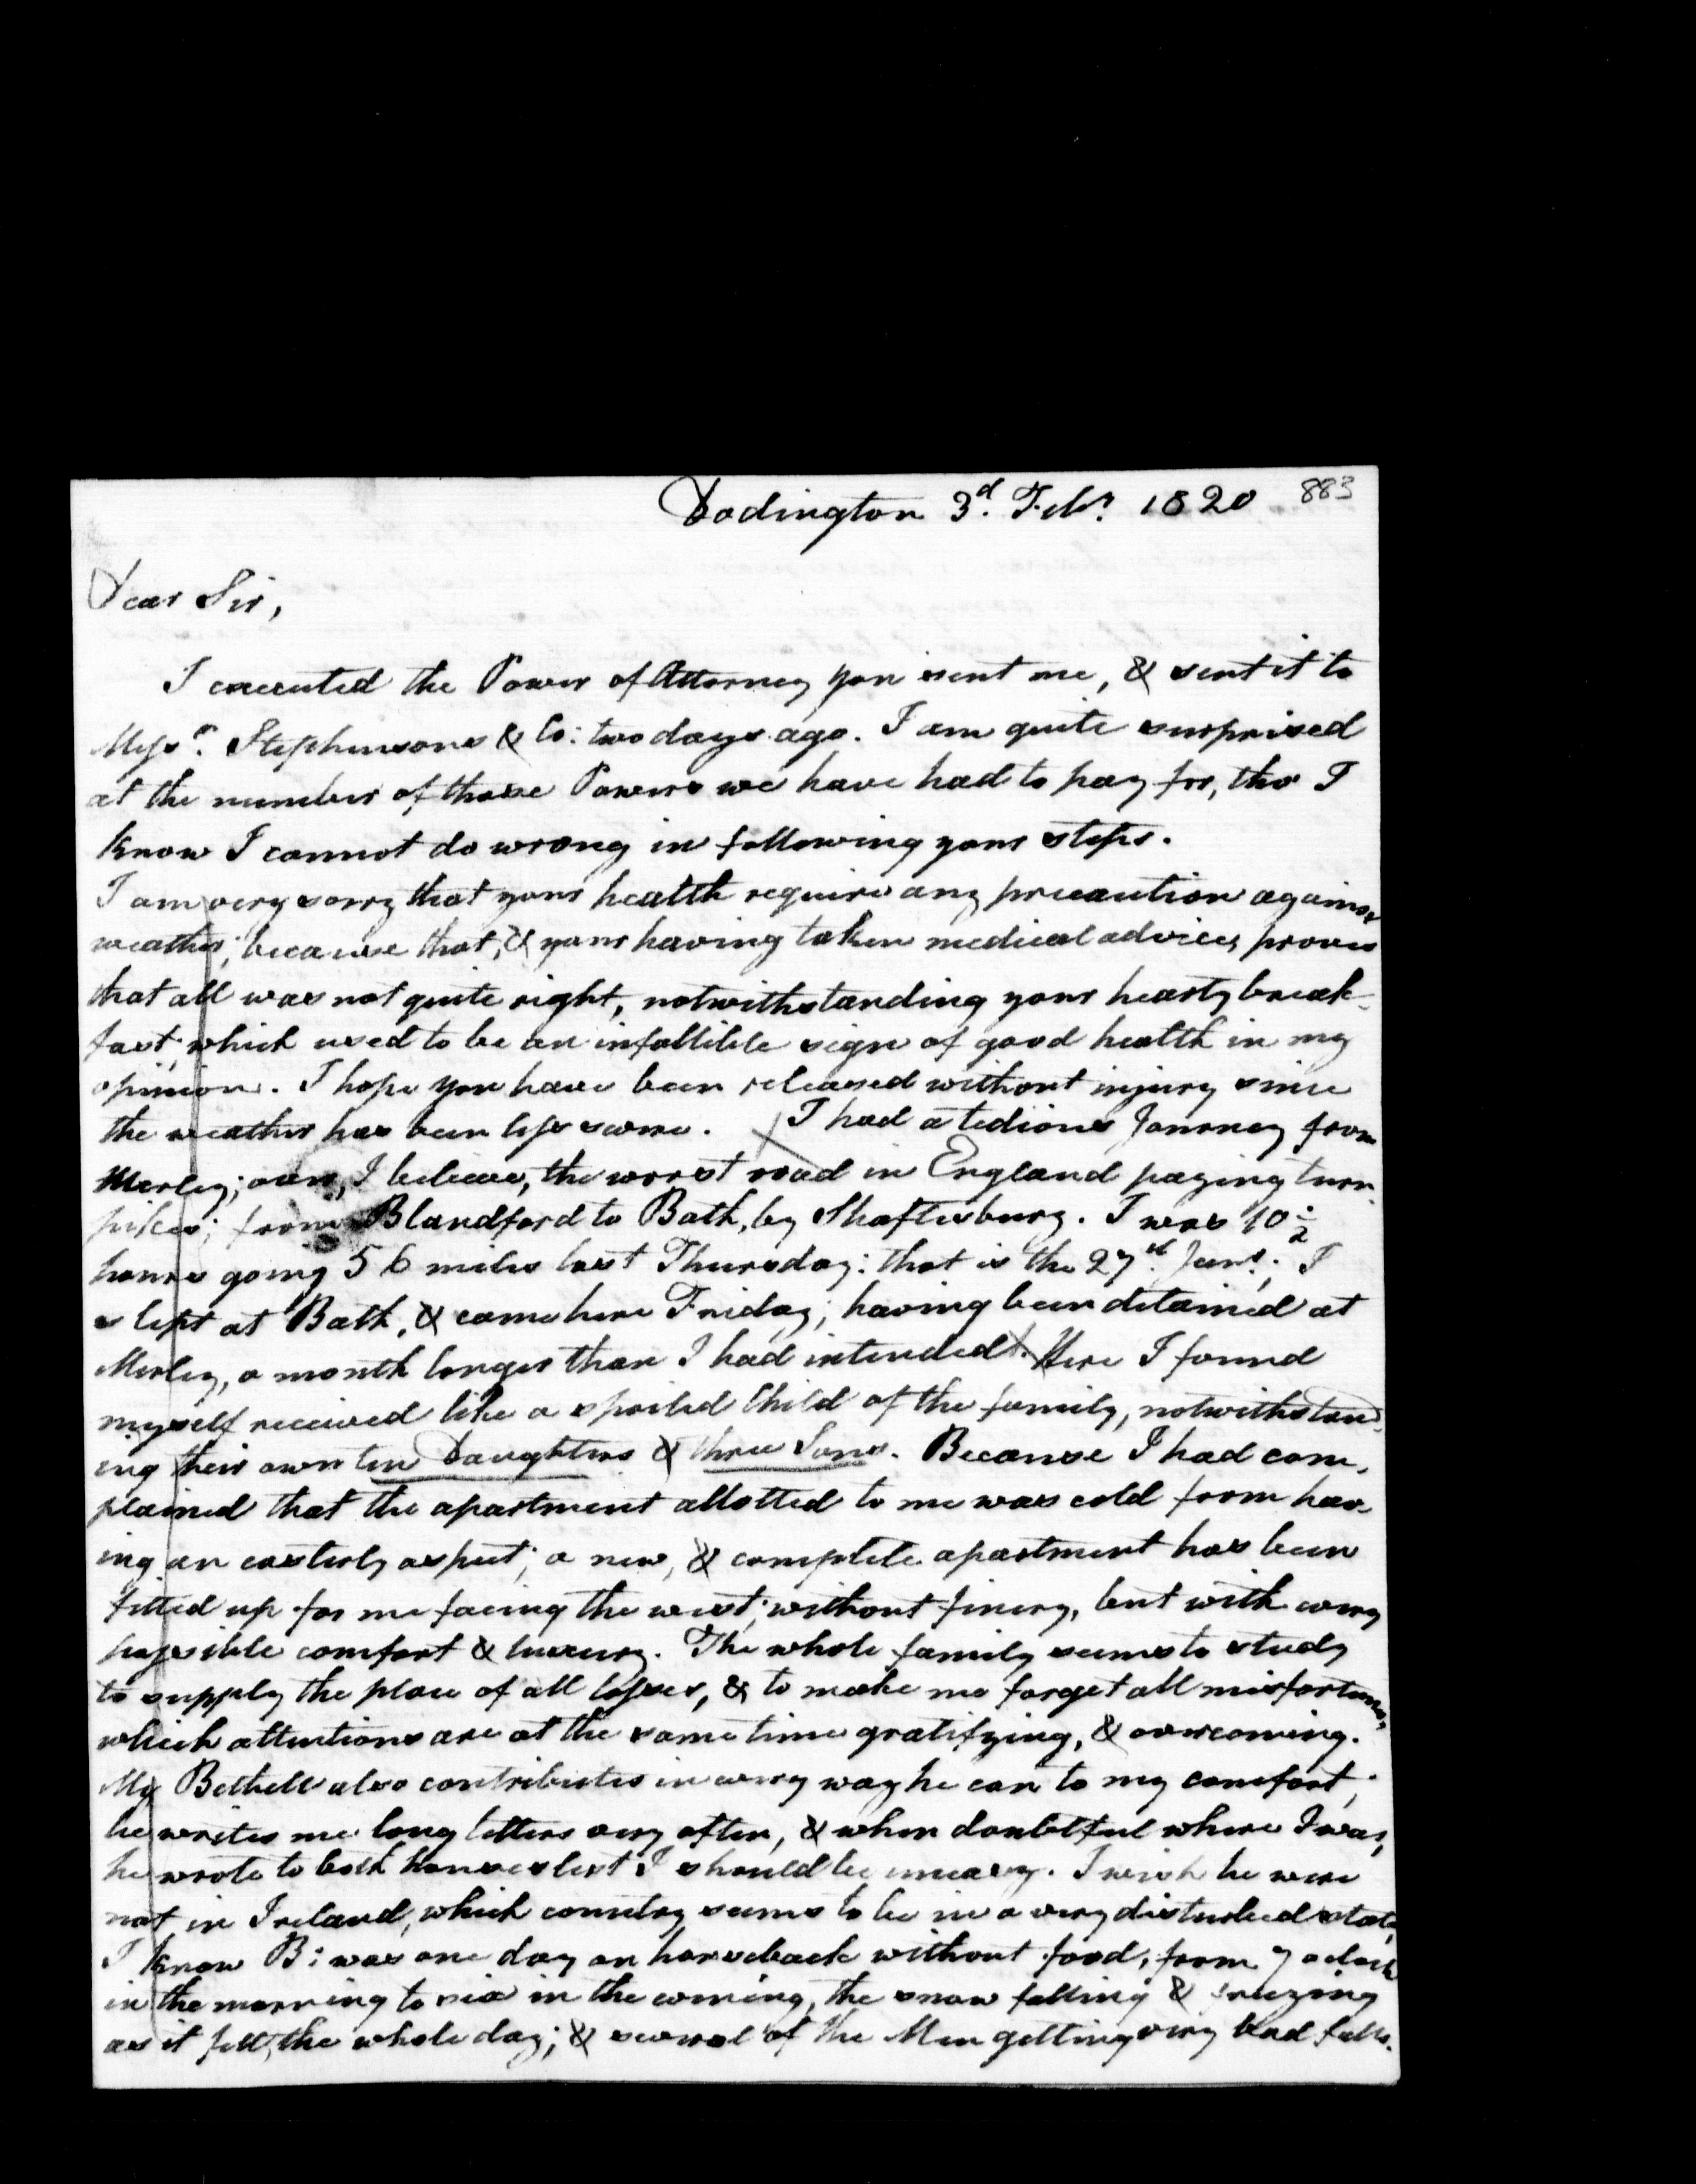 Dodington 3d. Feby. 1820 883
Dear Sir,
I executed the Power of Attorney you sent me, & sent it to
Messrs. Stephensons & Co: two days ago. I am quite surprised
at the number of these Powers we have had to pay for, tho' I
know I cannot do wrong in following your steps.
I am very sorry that your health require any precaution against
weather; because that, & your having taken medical advice, proves
that all was not quite right, notwithstanding your hearty break-
fast, which used to be an infallible sign of good health in my
opinion. I hope you have been released without injury since
the weather has been less severe. I had a tedious Journey from
Merley; over, I believe, the worst road in England paying turn-
pikes; from Blandford to Bath, by Shaftesbury. I was 10 1/2
hours going 56 miles last Thursday: that is the 27th. Jany.; I
slept at Bath, & came here Friday; having been detained at
Merley, a month longer than I had intended. Here I found
myself received like a spoiled Child of the family, notwithstand-
ing their own ten Daughters & three Sons. Because I had com-
plained that the apartment allotted to me was cold from hav-
ing an easterly aspect; a new, & complete apartment has been
fitted up for me facing the west; without finery, but with every
possible comfort & luxury. The whole family seems to study
to supply the place of all losses, & to make me forget all misfortunes,
which attentions are at the same time gratifying, & overcoming.
My Bethell also contributes in every way he can to my comfort;
he writes me long letters very often, & when doubtful where I was,
he wrote to both houses lest I should be uneasy. I wish he were
not in Ireland, which country seems to be in a very disturbed state,
I know B: was one day on horseback without food, from 7 oclock
in the morning to six in the evening, the snow falling & freezing
as it fell, the whole day; & several of the Men getting very bad falls.